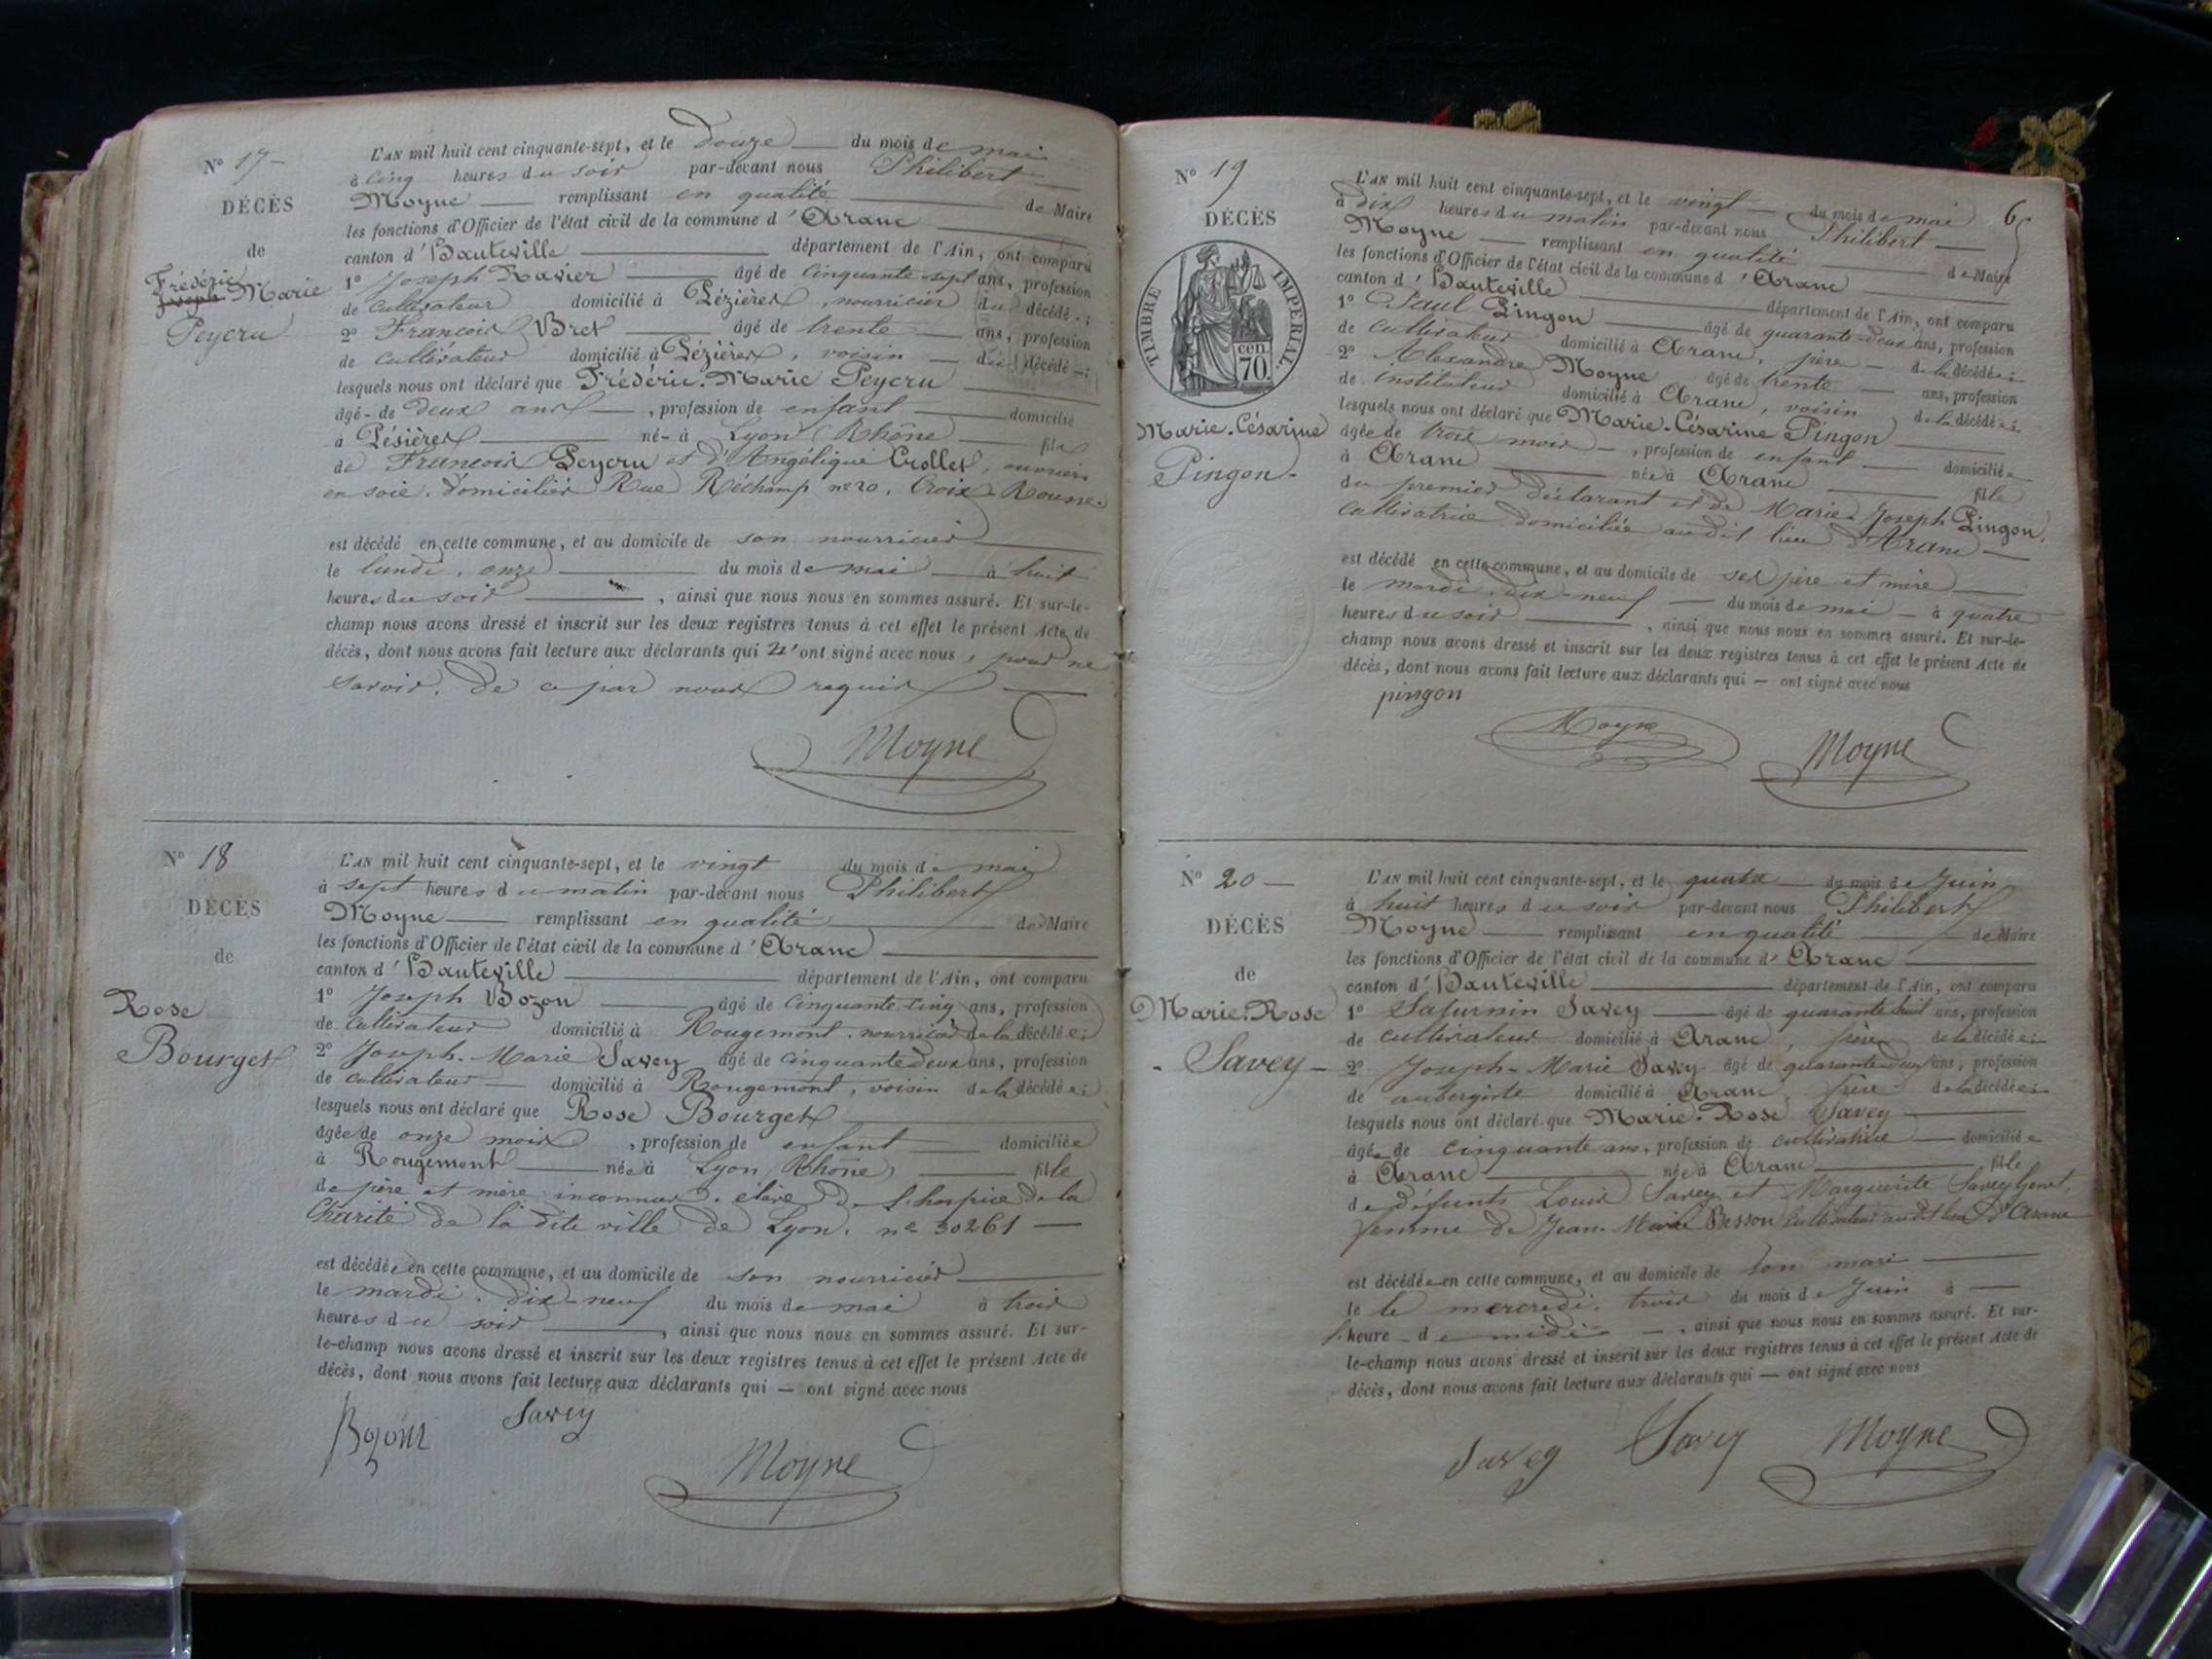 N° 17 —
DÉCÈS
de
Frédéric
Joseph Marie
Peycru
L'AN mil huit cent cinquante-sept, et le douze — du mois de mai
à cinq heures du soir par-devant nous Philibert —
Moyne — remplissant en qualité — de Maire
les fonctions d'Officier de l'état civil de la commune d'Aranc —
canton d'Hauteville — département de l'Ain, ont comparu
1° Joseph Ravier — âgé de cinquante-sept ans, profession
de cultivateur domicilié à Pézières, nourricier du décédé ;
2° François Bret — âgé de trente — ans, profession
de cultivateur domicilié à Pézières, voisin — du décédé ;
lesquels nous ont déclaré que Frédéric-Marie Peycru —
âgé de deux ans —, profession de enfant — domicilié
à Pésières — né à Lyon (Rhône) — fils
de François Peycru et d'Angélique Crollet, ouvriers
en soie, domiciliés Rue Réchamp n° 20, Croix-Rousse.
est décédé en cette commune, et au domicile de son nourricier —
le lundi, onze — du mois de mai — à huit
heures du soir —, ainsi que nous nous en sommes assuré. Et sur-le-
champ nous avons dressé et inscrit sur les deux registres tenus à cet effet le présent Acte de
décès, dont nous avons fait lecture aux déclarants qui n'ont signé avec nous, pour ne
savoir, de ce par nous requis —
Moyne
N° 18
DÉCÈS
de
Rose
Bourget
L'AN mil huit cent cinquante-sept, et le vingt du mois de mai
à sept heures du matin par-devant nous Philibert
Moyne — remplissant en qualité — de Maire
les fonctions d'Officier de l'état civil de la commune d'Aranc —
canton d'Hauteville — département de l'Ain, ont comparu
1° Joseph Bozon — âgé de cinquante-cinq ans, profession
de cultivateur domicilié à Rougemont, nourricier de la décédée ;
2° Joseph-Marie Savey âgé de cinquante deux ans, profession
de cultivateur — domicilié à Rougemont, voisin de la décédée ;
lesquels nous ont déclaré que Rose Bourget —
âgée de onze mois, profession de enfant — domiciliée
à Rougemont — née à Lyon (Rhône) — fille
de père et mère inconnus, élève de l'hospice de la
Charité de la dite ville de Lyon, n° 30261 —
est décédée en cette commune, et au domicile de son nourricier —
le mardi, dix-neuf du mois de mai à trois
heures du soir —, ainsi que nous nous en sommes assuré. Et sur-
le-champ nous avons dressé et inscrit sur les deux registres tenus à cet effet le présent Acte de
décès, dont nous avons fait lecture aux déclarants qui — ont signé avec nous
Bozon Savey
Moyne
N° 19
DÉCÈS
TIMBRE IMPÉRIAL.
cen.
70.
Marie-Césarine
Pingon.
6
L'AN mil huit cent cinquante-sept, et le vingt — du mois de mai
à dix heures du matin par-devant nous Philibert —
Moyne — remplissant en qualité — de Maire
les fonctions d'Officier de l'état civil de la commune d'Aranc —
canton d'Hauteville — département de l'Ain, ont comparu
1° Paul Pingon — âgé de quarante-deux ans, profession
de cultivateur domicilié à Aranc, père — de la décédée ;
2° Alexandre Moyne âgé de trente — ans, profession
de instituteur domicilié à Aranc, voisin de la décédée ;
lesquels nous ont déclaré que Marie-Césarine Pingon —
âgée de trois mois —, profession de enfant — domiciliée
à Aranc — née à Aranc — fille
du premier déclarant et de Marie-Joseph Pingon,
cultivatrice domiciliée audit lieu d'Aranc —
est décédé en cette commune, et au domicile de ses père et mère —
le mardi, dix-neuf — du mois de mai — à quatre
heures du soir —, ainsi que nous nous en sommes assuré. Et sur-le-
champ nous avons dressé et inscrit sur les deux registres tenus à cet effet le présent Acte de
décès, dont nous avons fait lecture aux déclarants qui — ont signé avec nous
pingon
Moyne Moyne
N° 20 —
DÉCÈS
de
Marie-Rose
- Savey -
L'AN mil huit cent cinquante-sept, et le quatre — du mois de Juin
à huit heures du soir par-devant nous Philibert
Moyne — remplissant en qualité — de Maire
les fonctions d'Officier de l'état civil de la commune d'Aranc —
canton d'Hauteville — département de l'Ain, ont comparu
1° Saturnin Savey — âgé de quarante huit ans, profession
de cultivateur domicilié à Aranc, frère de la décédée ;
2° Joseph-Marie Savey âgé de quarante-deux ans, profession
de aubergiste domicilié à Aranc, frère de la décédée ;
lesquels nous ont déclaré que Marie-Rose Savey —
âgée de cinquante ans, profession de cultivatrice — domiciliée
à Aranc — née à Aranc — fille
de défunts Louis Savey et Marguerite Savey Genet,
femme de Jean-Marie Besson cultivateur audit lieu d'Aranc
est décédée en cette commune, et au domicile de son mari —
le le mercredi, trois du mois de Juin à —
l'heure de midi —, ainsi que nous nous en sommes assuré. Et sur-
le-champ nous avons dressé et inscrit sur les deux registres tenus à cet effet le présent Acte de
décès, dont nous avons fait lecture aux déclarants qui — ont signé avec nous
Savey Savey Moyne